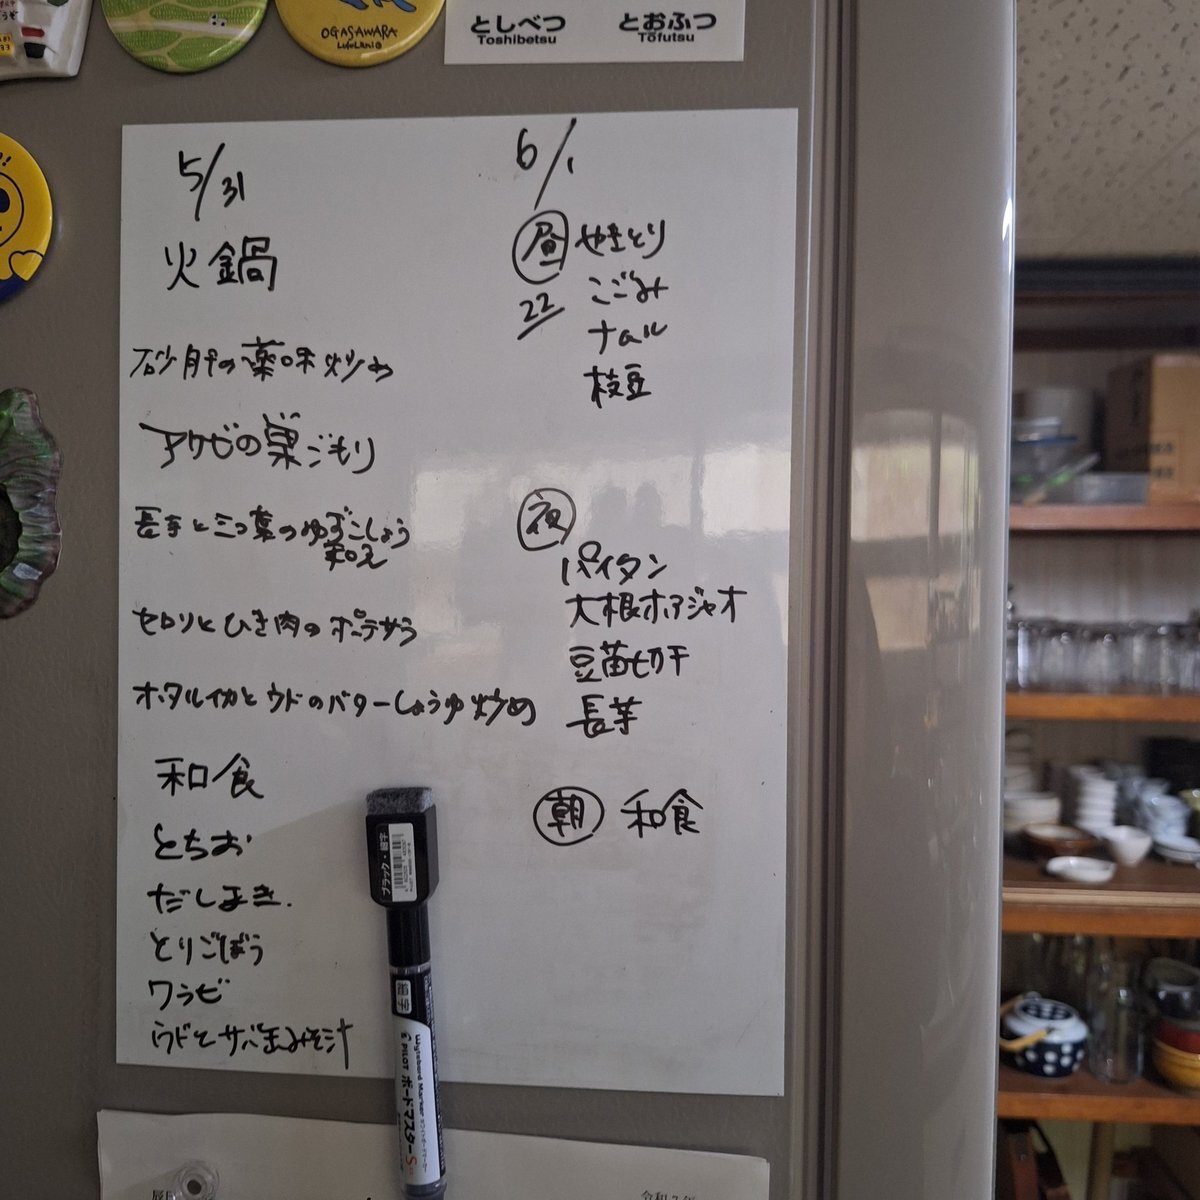 OGASAWARA
としべつ
Toshibetsu
とおふつ
Tōfutsu
5/31
火鍋
砂肝の薬味炒め
アケビの巣ごもり
長芋と三つ葉のゆずこしょう
和え
セロリとひき肉のポテサラ
ホタルイカとウドのバターしょうゆ炒め
和食
とちお
だしまき.
とりごぼう
ワラビ
ウドとサバ缶みそ汁
6/1
昼 やきとり
22 こごみ
ナムル
枝豆
夜
パイタン
大根ホアジャオ
豆苗切干
長芋
朝 和食
ブラック・細字
細字
Wyteboard Marker
PILOT ボードマスターS